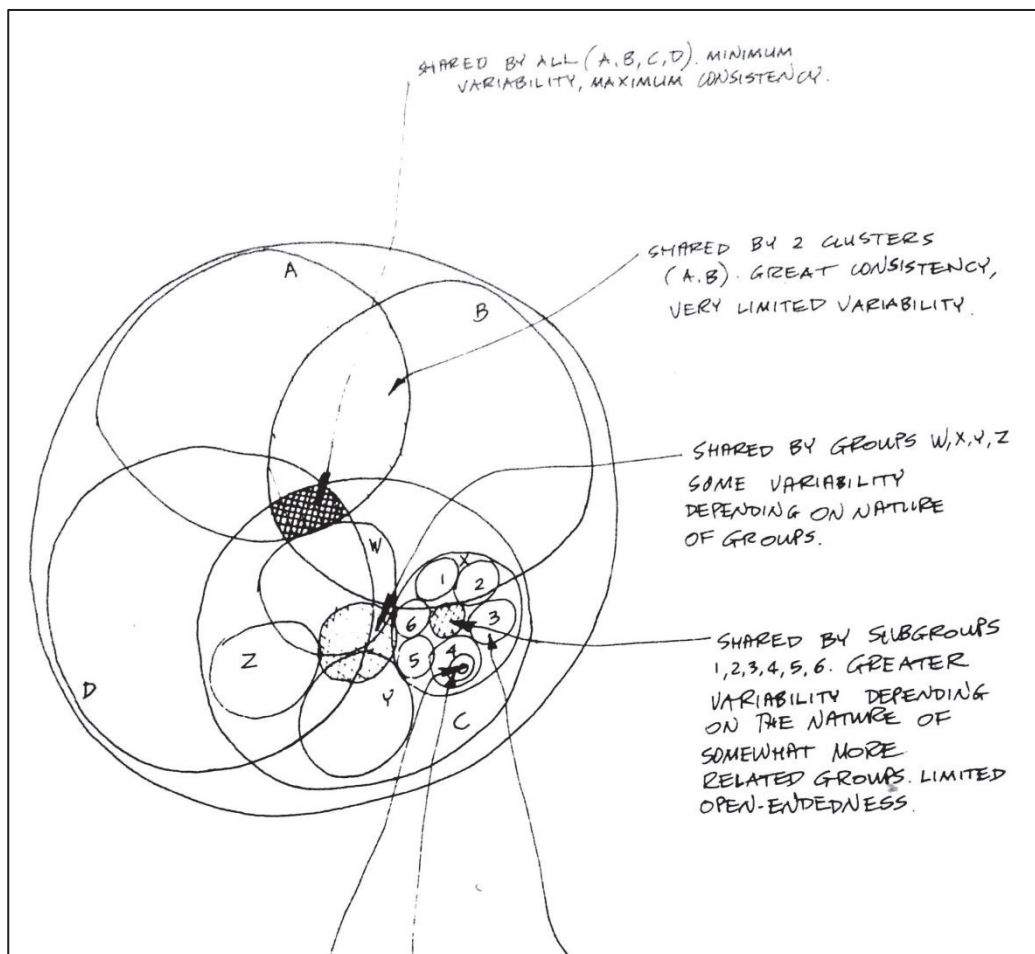 SHARED BY ALL (A,B,C,D). MINIMUM
VARIABILITY, MAXIMUM CONSISTENCY.
A
SHARED BY 2 CLUSTERS
(A.B). GREAT CONSISTENCY,
VERY LIMITED VARIABILITY.
B
SHARED BY GROUPS W,X,Y,Z
SOME VARIABILITY
DEPENDING ON NATURE
OF GROUPS.
W
X
1
2
6
3
5
4
Z
Y
D
C
SHARED BY SUBGROUPS
1,2,3,4,5,6. GREATER
VARIABILITY DEPENDING
ON THE NATURE OF
SOMEWHAT MORE
RELATED GROUPS. LIMITED
OPEN-ENDEDNESS.